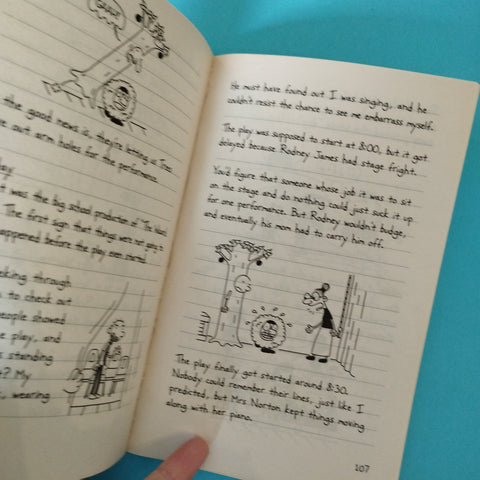 the good news is, they're letting us Trees
out arm holes for the performance.
was the big school production of "The
The first sign that things were not going to
happened before the play even started.
through
to check out
people showed
play, and
standing
My
wearing
He must have found out I was singing, and he
couldn't resist the chance to see me embarrass myself.
The play was supposed to start at 8:00, but it got
delayed because Rodney James had stage fright.
You'd figure that someone whose job it was to sit
on the stage and do nothing could just suck it up
for one performance. But Rodney wouldn't budge,
and eventually his mom had to carry him off.
The play finally got started around 8:30.
Nobody could remember their lines, just like I
predicted, but Mrs Norton kept things moving
along with her piano.
107